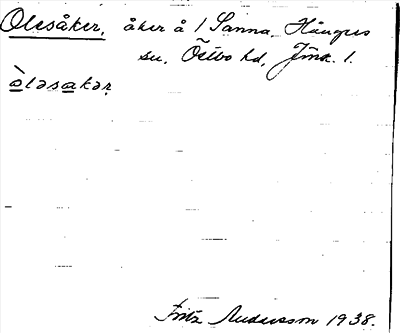 Olesåker, åker å 1 Sanna, Hångers
sn, Östbo hd, Jönk. l.
òlesakər
Fritz Andersson 1938.